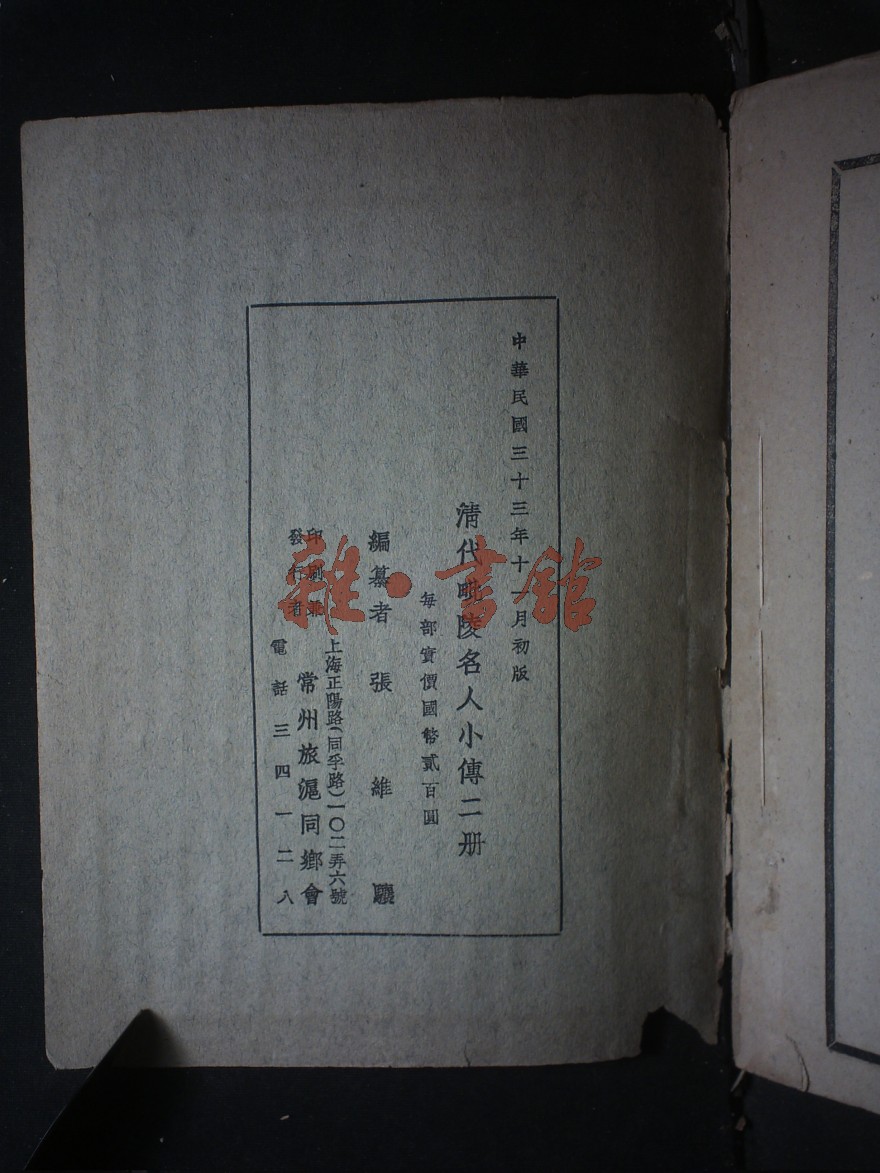 中華民國三十三年十一月初版
清代毗陵名人小傳二册
每部實價國幣貳百圓
編纂者 張維驤
印刷兼
發行者
上海正陽路(同孚路)一〇二弄六號
常州旅滬同鄉會
電話三四一二八
雜·書館